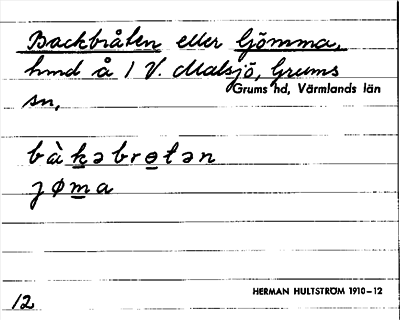 Backbråten eller Gjömma,
hmd å 1 V. Malsjö, Grums
Grums hd, Värmlands län
sn,
bàkəbrotən
jøma
HERMAN HULTSTRÖM 1910–12
12